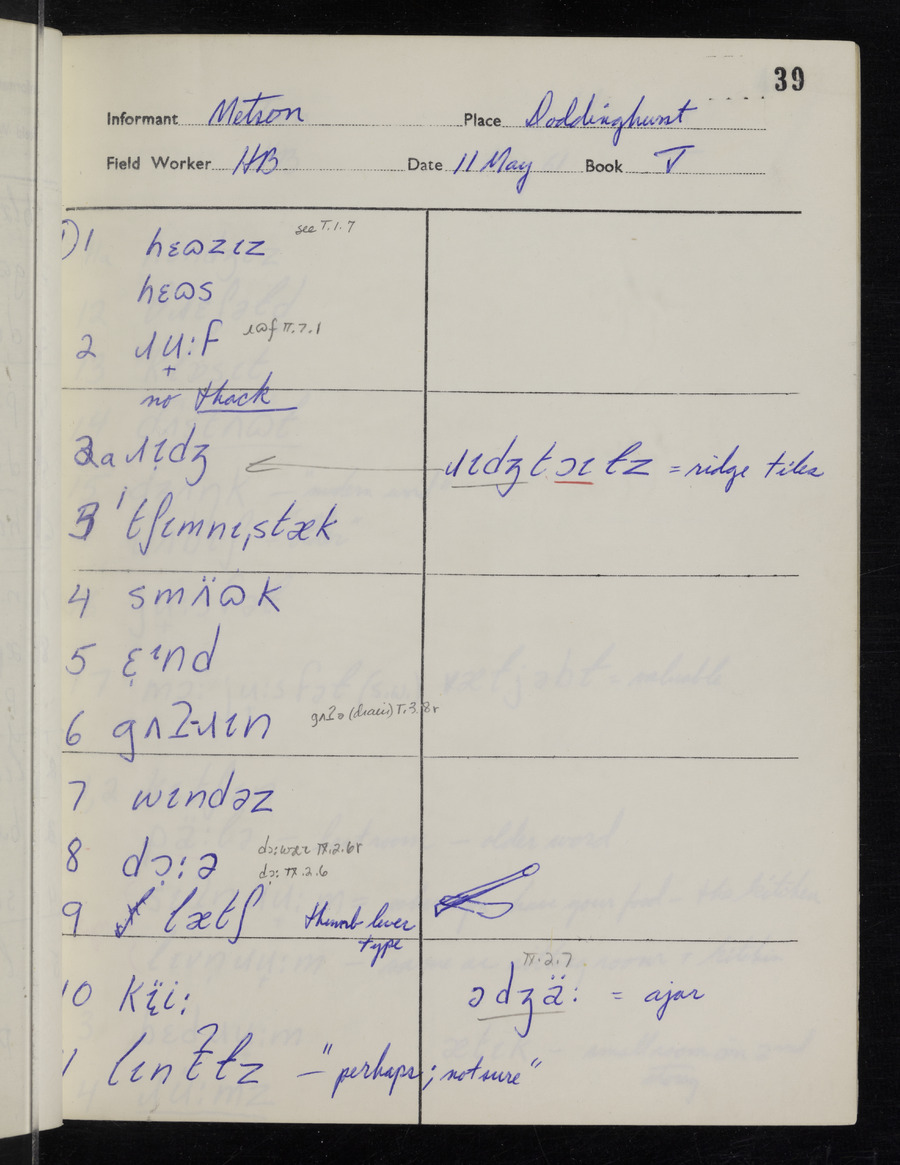 39
Informant Metson Place Doddinghurst
Field Worker HB Date 11 May Book V
1 hɛɷzɪz see V.1.7
hɛɷs
2 ɹu̟:f ɹɷf V.7.1
no thack
2a ɹɪ̣dʒ ← ɹɪdʒtɔɪɫz = ridge tiles
3 ˈtʃɪmnɪˌstæk
4 smʌ̈ɷk
5 ɛ̣ɪnd
6 gʌʔ-ɹɪn
7 wɪndəz
8 dɔ̣:ə
9 lætʃ thumb lever type
V.2.7
10 kï̞i: ədʒä: = ajar
lɪnʔɫz — "perhaps; not sure"